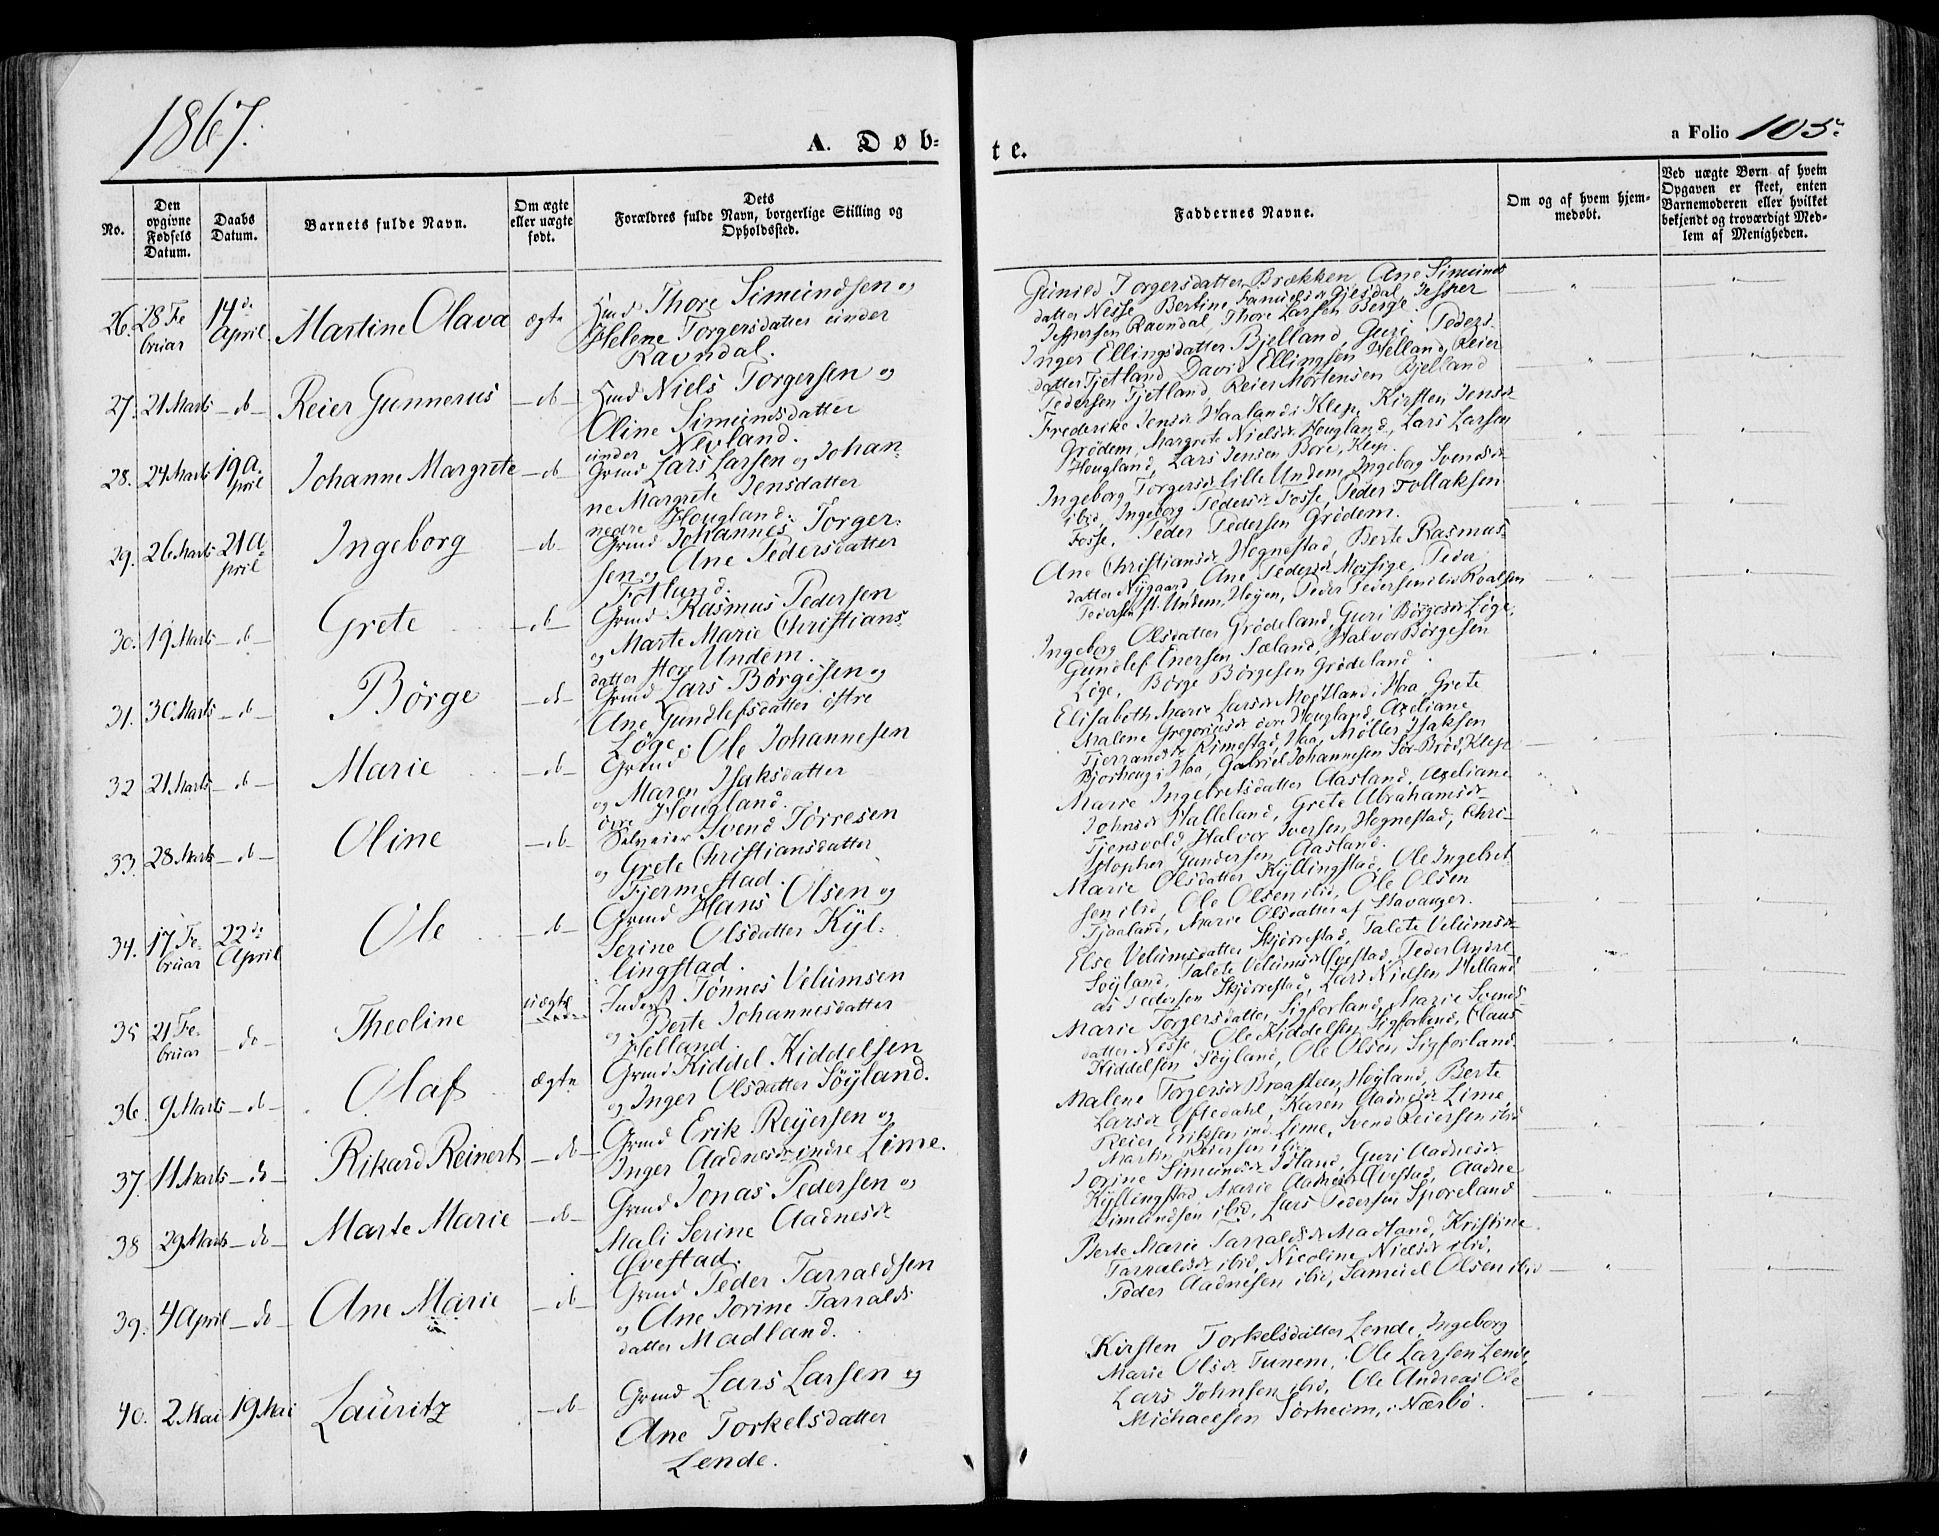 1867.
A. Døb-
te.
a Folio 105.
No.
Den opgivne Fødsels Datum.
Daabs Datum.
Barnets fulde Navn.
Om ægte eller uægte født.
Dets Forældres fulde Navn, borgerlige Stilling og Opholdssted.
Faddernes Navne.
Om og af hvem hjem-
medøbt.
Ved uægte Børn af hvem
Opgaven er skeet, enten
Barnemoderen eller hvilket
bekjendt og troværdigt Med-
lem af Menigheden.
26. 28 Fe
bruar
14de
April
Martine Olava
ægte
Thore Simundsen og
Helene Torgersdatter under
Ravndal.
Gunild Torgersdatter Brækken, Ane Simunds
datter Nesse, Bertine Gjesdal, Jesper
Jespersen Ravndal, Thore Larsen Berge.
27. 21 Marts do
Reier Gunnerus
do
Niels Torgersen og
Oline Simundsdatter
under Nevland.
Inger Ellingsdatter Bjelland, Guri Peders-
datter Tjetland, David Ellingsen Helland, Reier
Pedersen Tjetland, Reier Mortensen Bjelland
28. 24 Marts 19 A-
pril
Johanne Margrete
do
Grmd Lars Larsen og Johan-
ne Margrete Jensdatter
nedre Hougland.
Frederike Jensdr Haaland i Klep, Kirsten Jensdr
Grødem, Margrete Nielsdr Hougland, Lars Larsen
Hougland, Lars Jensen Bore, Klep.
29. 26 Marts 21 A-
pril
Ingeborg
do
Grmd Johannes Torger-
sen og Ane Pedersdatter
Fotland.
Ingeborg Torgersdr lille Undem, Ingeborg Svendsdr
ibid, Ingeborg Pedersdr Fosse, Peder Tollaksen
Fosse, Peder Pedersen Grødem.
30. 19 Marts do
Grete
do
Grmd Rasmus Pedersen
og Marte Marie Christians-
datter store Undem.
Ane Christiansdr Hognestad, Berte Rasmus-
datter Nygaard, Ane Pedersdr Mossige, Peder
Pedersen st. Undem, Høyen, Peder Pedersen
31. 30 Marts do
Børge
do
Grmd Lars Børgesen og
Ane Gundlefsdatter østre
Løge.
Ingeborg Olsdatter Grødeland, Guri Børgesdr Løge,
Gundlef Enersen Sæland, Halvor Børgesen
Løge, Børge Børgesen Grødeland.
32 21 Marts do
Marie
do
Grmd Ole Johannesen
og Maren Isaksdatter
øvre Hougland.
Elisabeth Marie Larsdr Motland i Haa, Grete
Malene Gregoriusdr øvre Hougland, Axeliane
Tjerrandsdr Rimestad, Haa, Møller Isaksen
Bjorhaug i Haa, Gabriel Johannesen Sør-Brød, Klep.
33. 28 Marts do
Oline
do
Selveier Svend Torresen
og Grete Christiansdatter
Fjermestad.
Marie Ingebretsdatter Aasland, Axeliane
Johnsdr Halleland, Grete Abrahamsdr
Tjensvold, Halvor Iversen Hognestad, Chri-
stopher Gundersen Aasland.
34. 17 Fe-
bruar
22de
April
Ole
do
Grmd Hans Olsen og
Serine Olsdatter Kyl-
lingstad.
Marie Olsdatter Kyllingstad, Ole Ingebret
sen ibid, Ole Olsen ibid, Ole Olsen
Tjaaland, Marie Olsdatter af Stavanger.
35 21 Fe-
bruar
do
Theoline
uægte
Inderst Tønnes Velumsen
og Berte Johannesdatter
Helland.
Else Velumsdatter Skjørrestad, Talete Velumsdr
Søyland, Talete Velumsdr Øvestad, Peder Andre
as Pedersen Skjørrestad, Lars Nielsen Helland
36. 9 Marts do
Olaf
ægte
Grmd Kiddel Kiddelsen
og Inger Olsdatter Søyland.
Marie Torgersdatter Sigforland, Marie Svends
datter Nesse, Ole Kiddelsen Sigforland, Claus
Kiddelsen Søyland, Ole Olsen Sigforland.
37. 11 Marts do
Rikard Reinert
do
Grmd Erik Reyersen og
Inger Aadnesdr indre Lime.
Malene Torgersdr Braasteen, Høyland, Berte
Larsdr Oftedahl, Karen Aadnesdr Lime,
Reier Eriksen ind. Lime, Svend Reiersen ibid
Martin Reiersen ibid
38 29 Marts do
Marte Marie
do
Grmd Jonas Pedersen og
Mali Serine Aadnesdr
Øvestad.
Jorine Simundsdr Idland, Guri Aadnesdr
Kyllingstad, Marie Aadnesdr Øvestad, Aadne
Simundsen ibid, Lars Pedersen Sporeland
39. 4 April do
Ane Marie
do
Grmd Peder Tarraldsen
og Ane Jorine Tarralds-
datter Madland.
Berte Marie Tarraldsdr Madland, Kristine
Tarraldsdr ibid, Nicoline Nielsdr ibid,
Peder Aadnesen ibid, Samuel Olsen ibid
40. 2 Mai 19 Mai
Lauritz
do
Grmd Lars Larsen og
Ane Torkelsdatter
Lende.
Kirsten Torkelsdatter Lende, Ingeborg
Marie Olsdr Tunem, Ole Larsen Lende,
Lars Johnsen ibid, Ole Andreas Ole
Michaelsen Sørheim, i Nærbø.